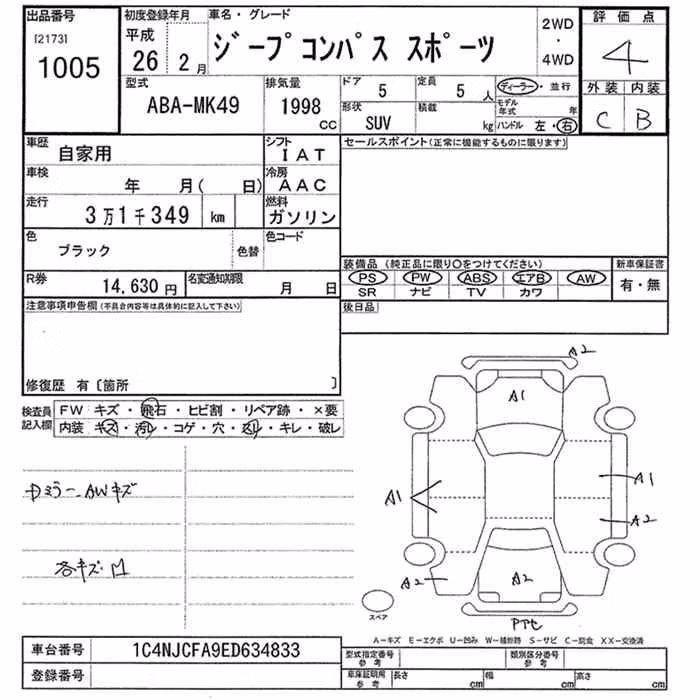 出品番号 初度登録年月 車名・グレード 2WD 評価点
[2173] 平成 ジープコンパス スポーツ ・ 4
1005 26年 2月 4WD
型式 排気量 ドア 5 定員 5人 ディーラー・並行 外装 内装
ABA-MK49 1998cc 形状 SUV 積載 kg モデル年式 年 C B
ハンドル 左・右
車歴 自家用 シフト IAT セールスポイント(正常に機能するものに限ります)
車検 年 月( 日) 冷房 AAC
走行 3万1千349 km 燃料 ガソリン
色 ブラック 色替 色コード
装備品(純正品に限り○をつけてください) 新車保証書
R券 14,630円 名変通知期限 月 日 PS PW ABS エアB AW 有・無
SR ナビ TV カワ
注意事項申告欄(不具合内容等は具体的に記入して下さい) 後日品
修復歴 有〔箇所 〕
検査員 FW キズ・飛石・ヒビ割・リペア跡・×要
記入欄 内装 キズ・汚レ・コゲ・穴・スリ・キレ・破レ
A2
A1
ミラー、AWキズ
A1 A1
A2
各キズ
A2 A2
スペア
A-キズ E-エクボ U-凹み W-補修跡 S-サビ C-腐食 XX-交換済
車台番号 1C4NJCFA9ED634833
型式指定番号 参考 類別区分番号 参考
登録番号 車庫証明用 参考 長さ cm 幅 cm 高さ cm